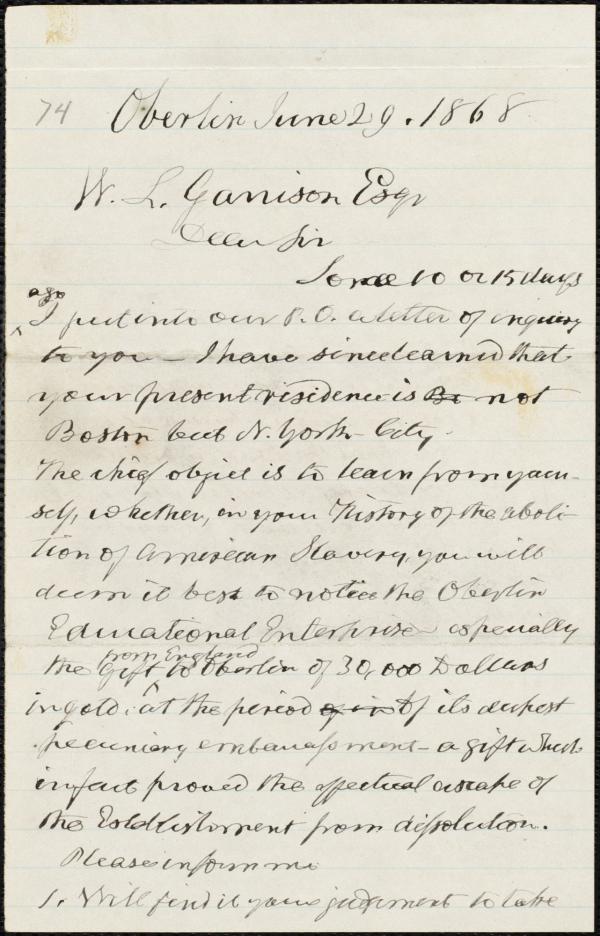 74 Oberlin June 29. 1868
W. L. Garrison Esqr
Dear Sir
Some 10 or 15 days
ago
I put into our P.O. a letter of inquiry
to you – I have since learned that
your present residence is Bo not
Boston but N. York City.
The chief object is to learn from your-
self, whether, in your History of the aboli-
tion of American Slavery, you will
deem it best to notice the Oberlin
Educational Enterprise especially
from England
the Gift to Oberlin of 30,000 Dollars
in gold. at the period of its deepest
pecuniary embarrassment – a gift which
in fact proved the effectual escape of
the Establishment from dissolution.
Please inform me
1. Will find it your judgment to take